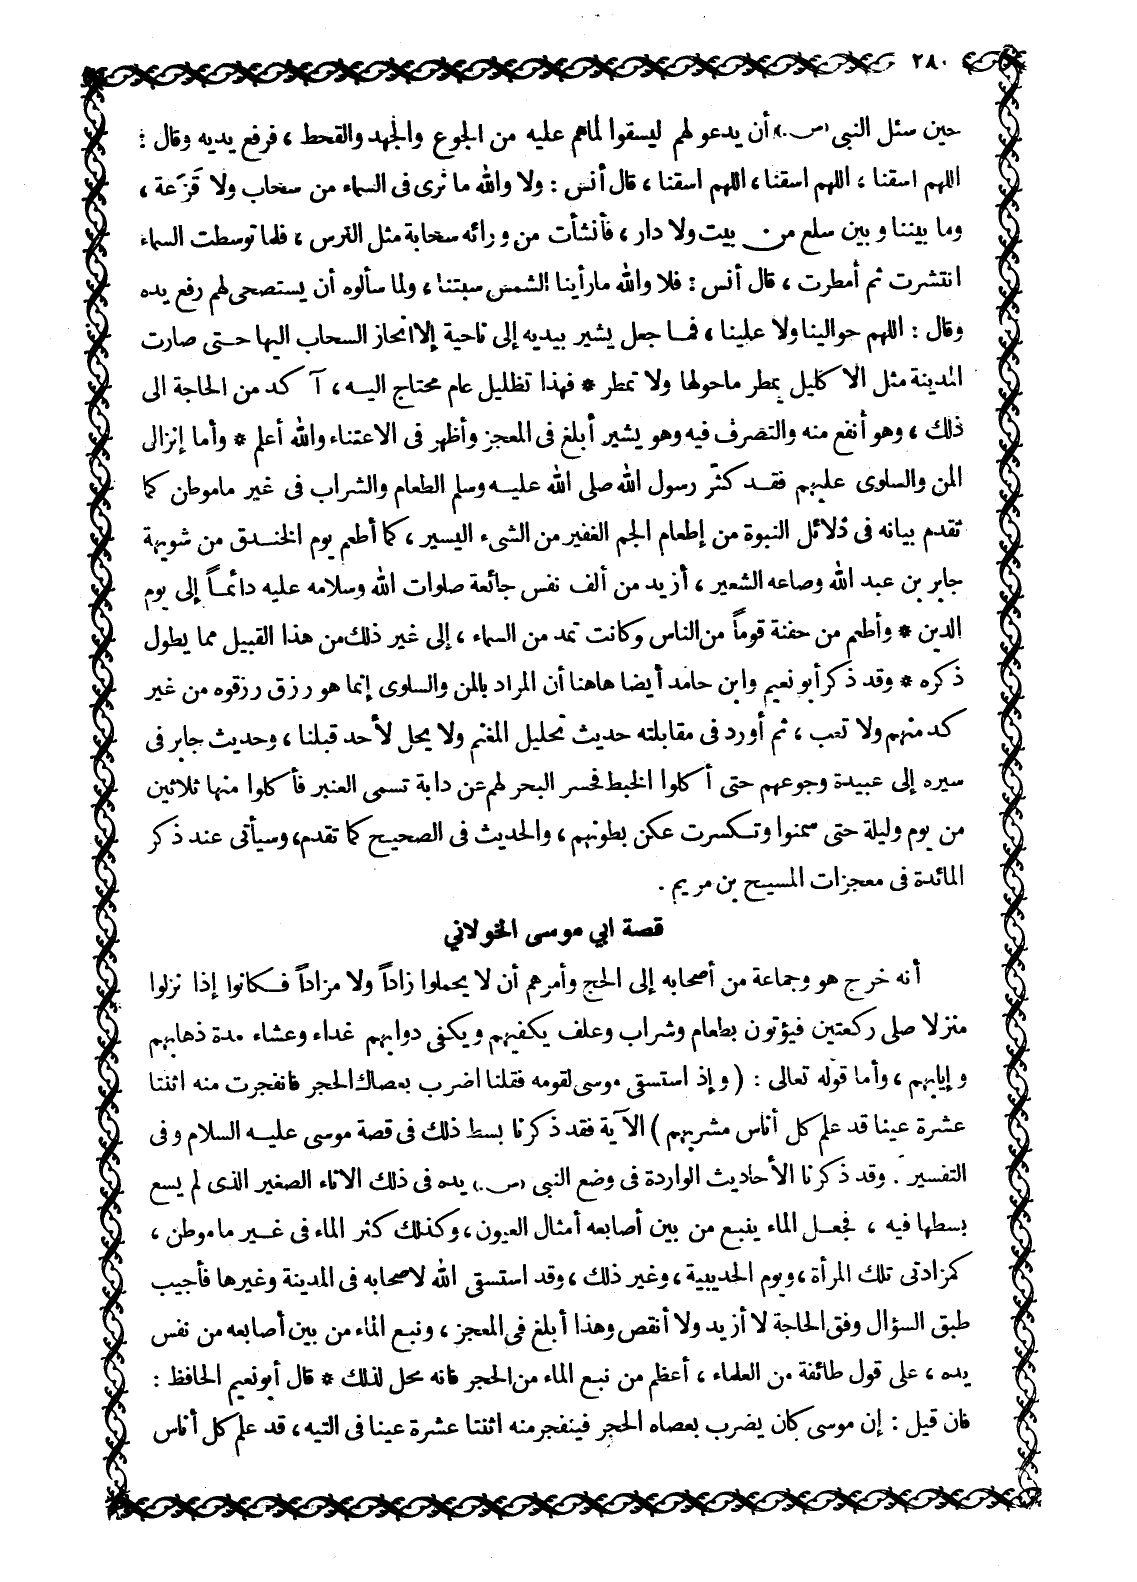 ٢٨٠
حين سئل النبى (ص.) أن يدعو لهم ليسقوا لماهم عليه من الجوع والجهد والقحط ، فرفع يديه وقال :
اللهم اسقنا ، اللهم اسقنا ، اللهم اسقنا ، قال أنس : ولا والله ما نرى فى السماء من سحاب ولا قَزَعة ،
وما بيننا وبين سلع من بيت ولا دار ، فأنشأت من ورائه سحابة مثل الترس ، فلما توسطت السماء
انتشرت ثم أمطرت ، قال أنس : فلا والله ما رأينا الشمس سبتنا ، ولما سألوه أن يستصحى لهم رفع يده
وقال : اللهم حوالينا ولا علينا ، فمـا جعل يشير بيديه إلى ناحية إلا انحاز السحاب اليها حـتى صارت
المدينة مثل الاكليل يمطر ماحولها ولا تمطر * فهذا تظليل عام محتاج اليـه ، آكد من الحاجة الى
ذلك ، وهو أنفع منه والتصرف فيه وهو يشير أبلغ فى المعجز وأظهر فى الاعتناء والله أعلم * وأما إنزال
المن والسلوى عليهم فقـد كثّر رسول الله صلى الله عليـه وسلم الطعام والشراب فى غير ماموطن كما
تقدم بيانه فى دلائل النبوة من إطعام الجم الغفير من الشىء اليسير ، كما أطعم يوم الخنـدق من شويهة
جابر بن عبد الله وصاعه الشعير ، أزيد من ألف نفس جائعة صلوات الله وسلامه عليه دائمـاً إلى يوم
الدين * وأطعم من حفنة قوماً من الناس وكانت تمد من السماء ، إلى غير ذلك من هذا القبيل مما يطول
ذكره * وقد ذكر أبو نعيم وابن حامد أيضا هاهنا أن المراد بالمن والسلوى إنما هو رزق رزقوه من غير
كد منهم ولا تعب ، ثم أورد فى مقابلته حديث تحليل المغنم ولا يحل لأحد قبلنا ، وحديث جابر فى
سيره إلى عبيدة وجوعهم حتى أكلوا الخبط فحسر البحر لهم عن دابة تسمى العنبر فأكلوا منها ثلاثين
من يوم وليلة حتى سمنوا وتـكسرت عكن بطونهم ، والحديث فى الصحيـح كما تقدم، وسيأتى عند ذكر
المائدة فى معجزات المسيـح بن مريم .
قصة ابي موسى الخولاني
أنه خرج هو وجماعة من أصحابه إلى الحج وأمرهم أن لا يحملوا زاداً ولا مزاداً فـكانوا إذا نزلوا
منزلا صلى ركعتين فيؤتون بطعام وشراب وعلف يكفيهم ويكفى دوابهم غداء وعشاء مدة ذهابهم
وإيابهم ، وأما قوله تعالى : ( وإذ استسقى موسى لقومه فقلنا اضرب بعصاك الحجر فانفجرت منه اثنتا
عشرة عينا قد علم كل أناس مشربهم ) الآية فقد ذكرنا بسط ذلك فى قصة موسى عليـه السلام وفى
التفسير . وقد ذكرنا الأحاديث الواردة فى وضع النبى (ص.) يده فى ذلك الاناء الصغير الذى لم يسع
بسطها فيه ، فجعـل الماء ينبـع من بين أصابعه أمثال العيون، وكذلك كثر الماء فى غـير ماموطن ،
كمزادتى تلك المرأة ، ويوم الحديبية ، وغير ذلك ، وقد استسقى الله لاصحابه فى المدينة وغيرها فأجيب
طبق السؤال وفق الحاجة لا أزيد ولا أنقص وهذا أبلغ فى المعجز ، ونبـع الماء من بين أصابعه من نفس
يده ، على قول طائفة من العلماء ، أعظم من نبـع الماء من الحجر فانه محل لذلك * قال أبو نعيم الحافظ :
فان قيل : إن موسى كان يضرب بعصاه الحجر فينفجر منه اثنتا عشرة عينا فى التيه ، قد علم كل أناس